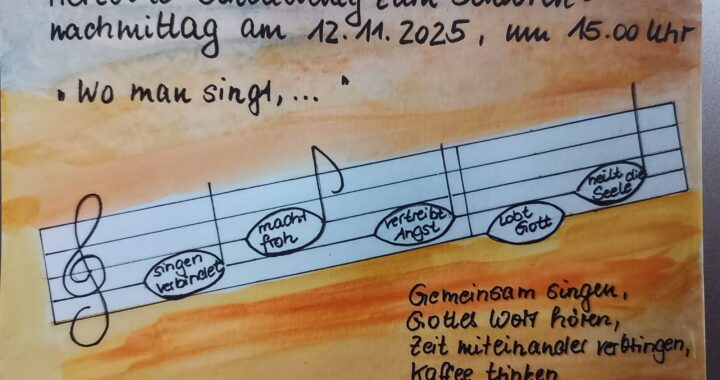 nachmittag am 12.11.2025, um 15.00 Uhr
„Wo man singt, ..."
singen
verbindet
macht
froh
vertreibt
Angst
lobt
Gott
heilt die
Seele
Gemeinsam singen,
Gottes Wort hören,
Zeit miteinander verbringen,
Kaffee trinken